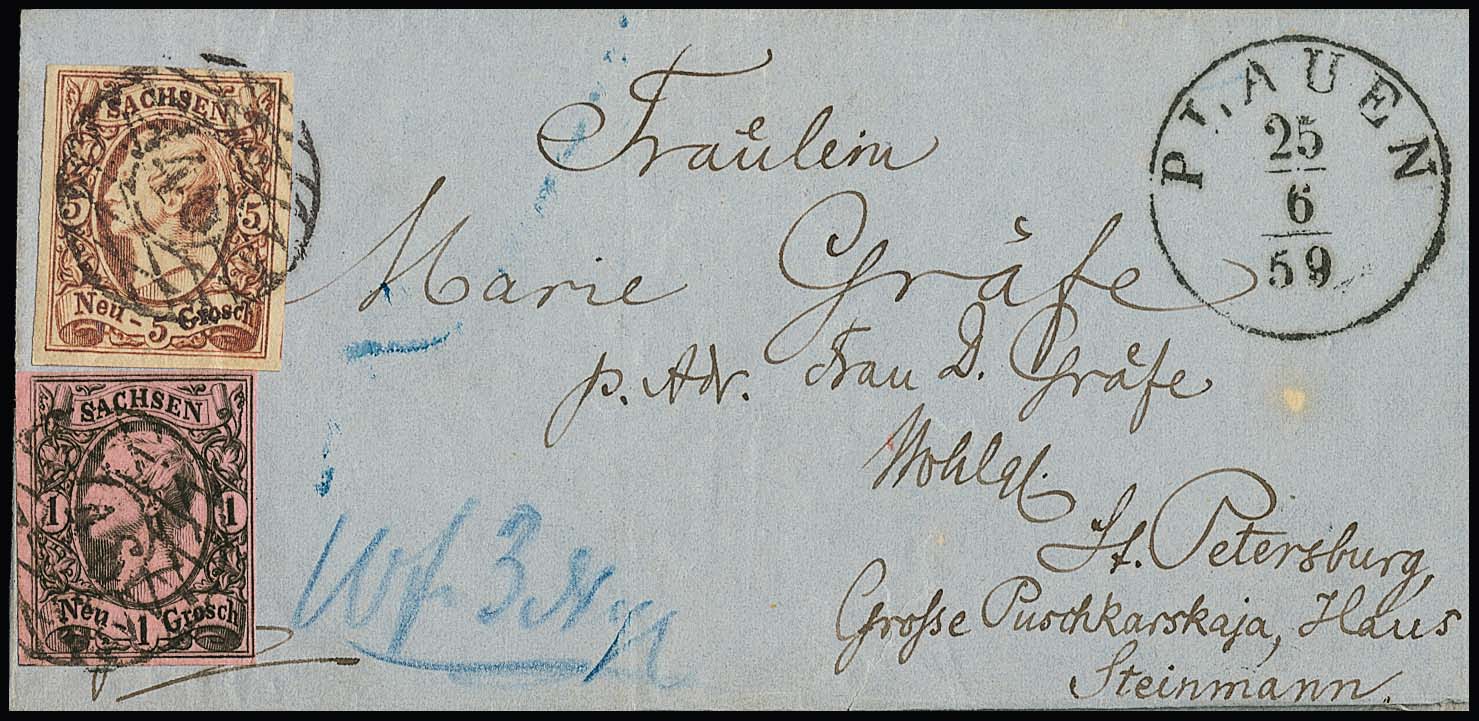 SACHSEN
5 5
Neu - 5 Grosch
SACHSEN
1 1
Neu - 1 Grosch
PLAUEN
25
6
59
Fräulein
Marie Gräfe
p. Adr. Frau D. Gräfe
Wohlgl.
St. Petersburg,
Große Puschkarskaja, Haus
Steinmann.
Wf. 3